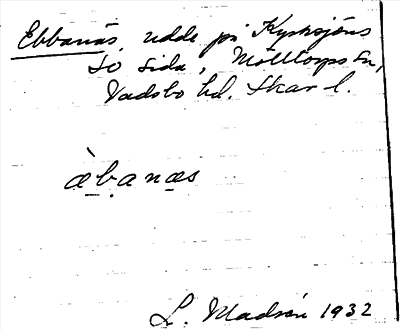 Ebbanäs, udde på Kyrksjöns
SO sida, Mölltorps sn,
Vadsbo hd. Skar l.
æ̀b̬a næs
L. Madsén 1932